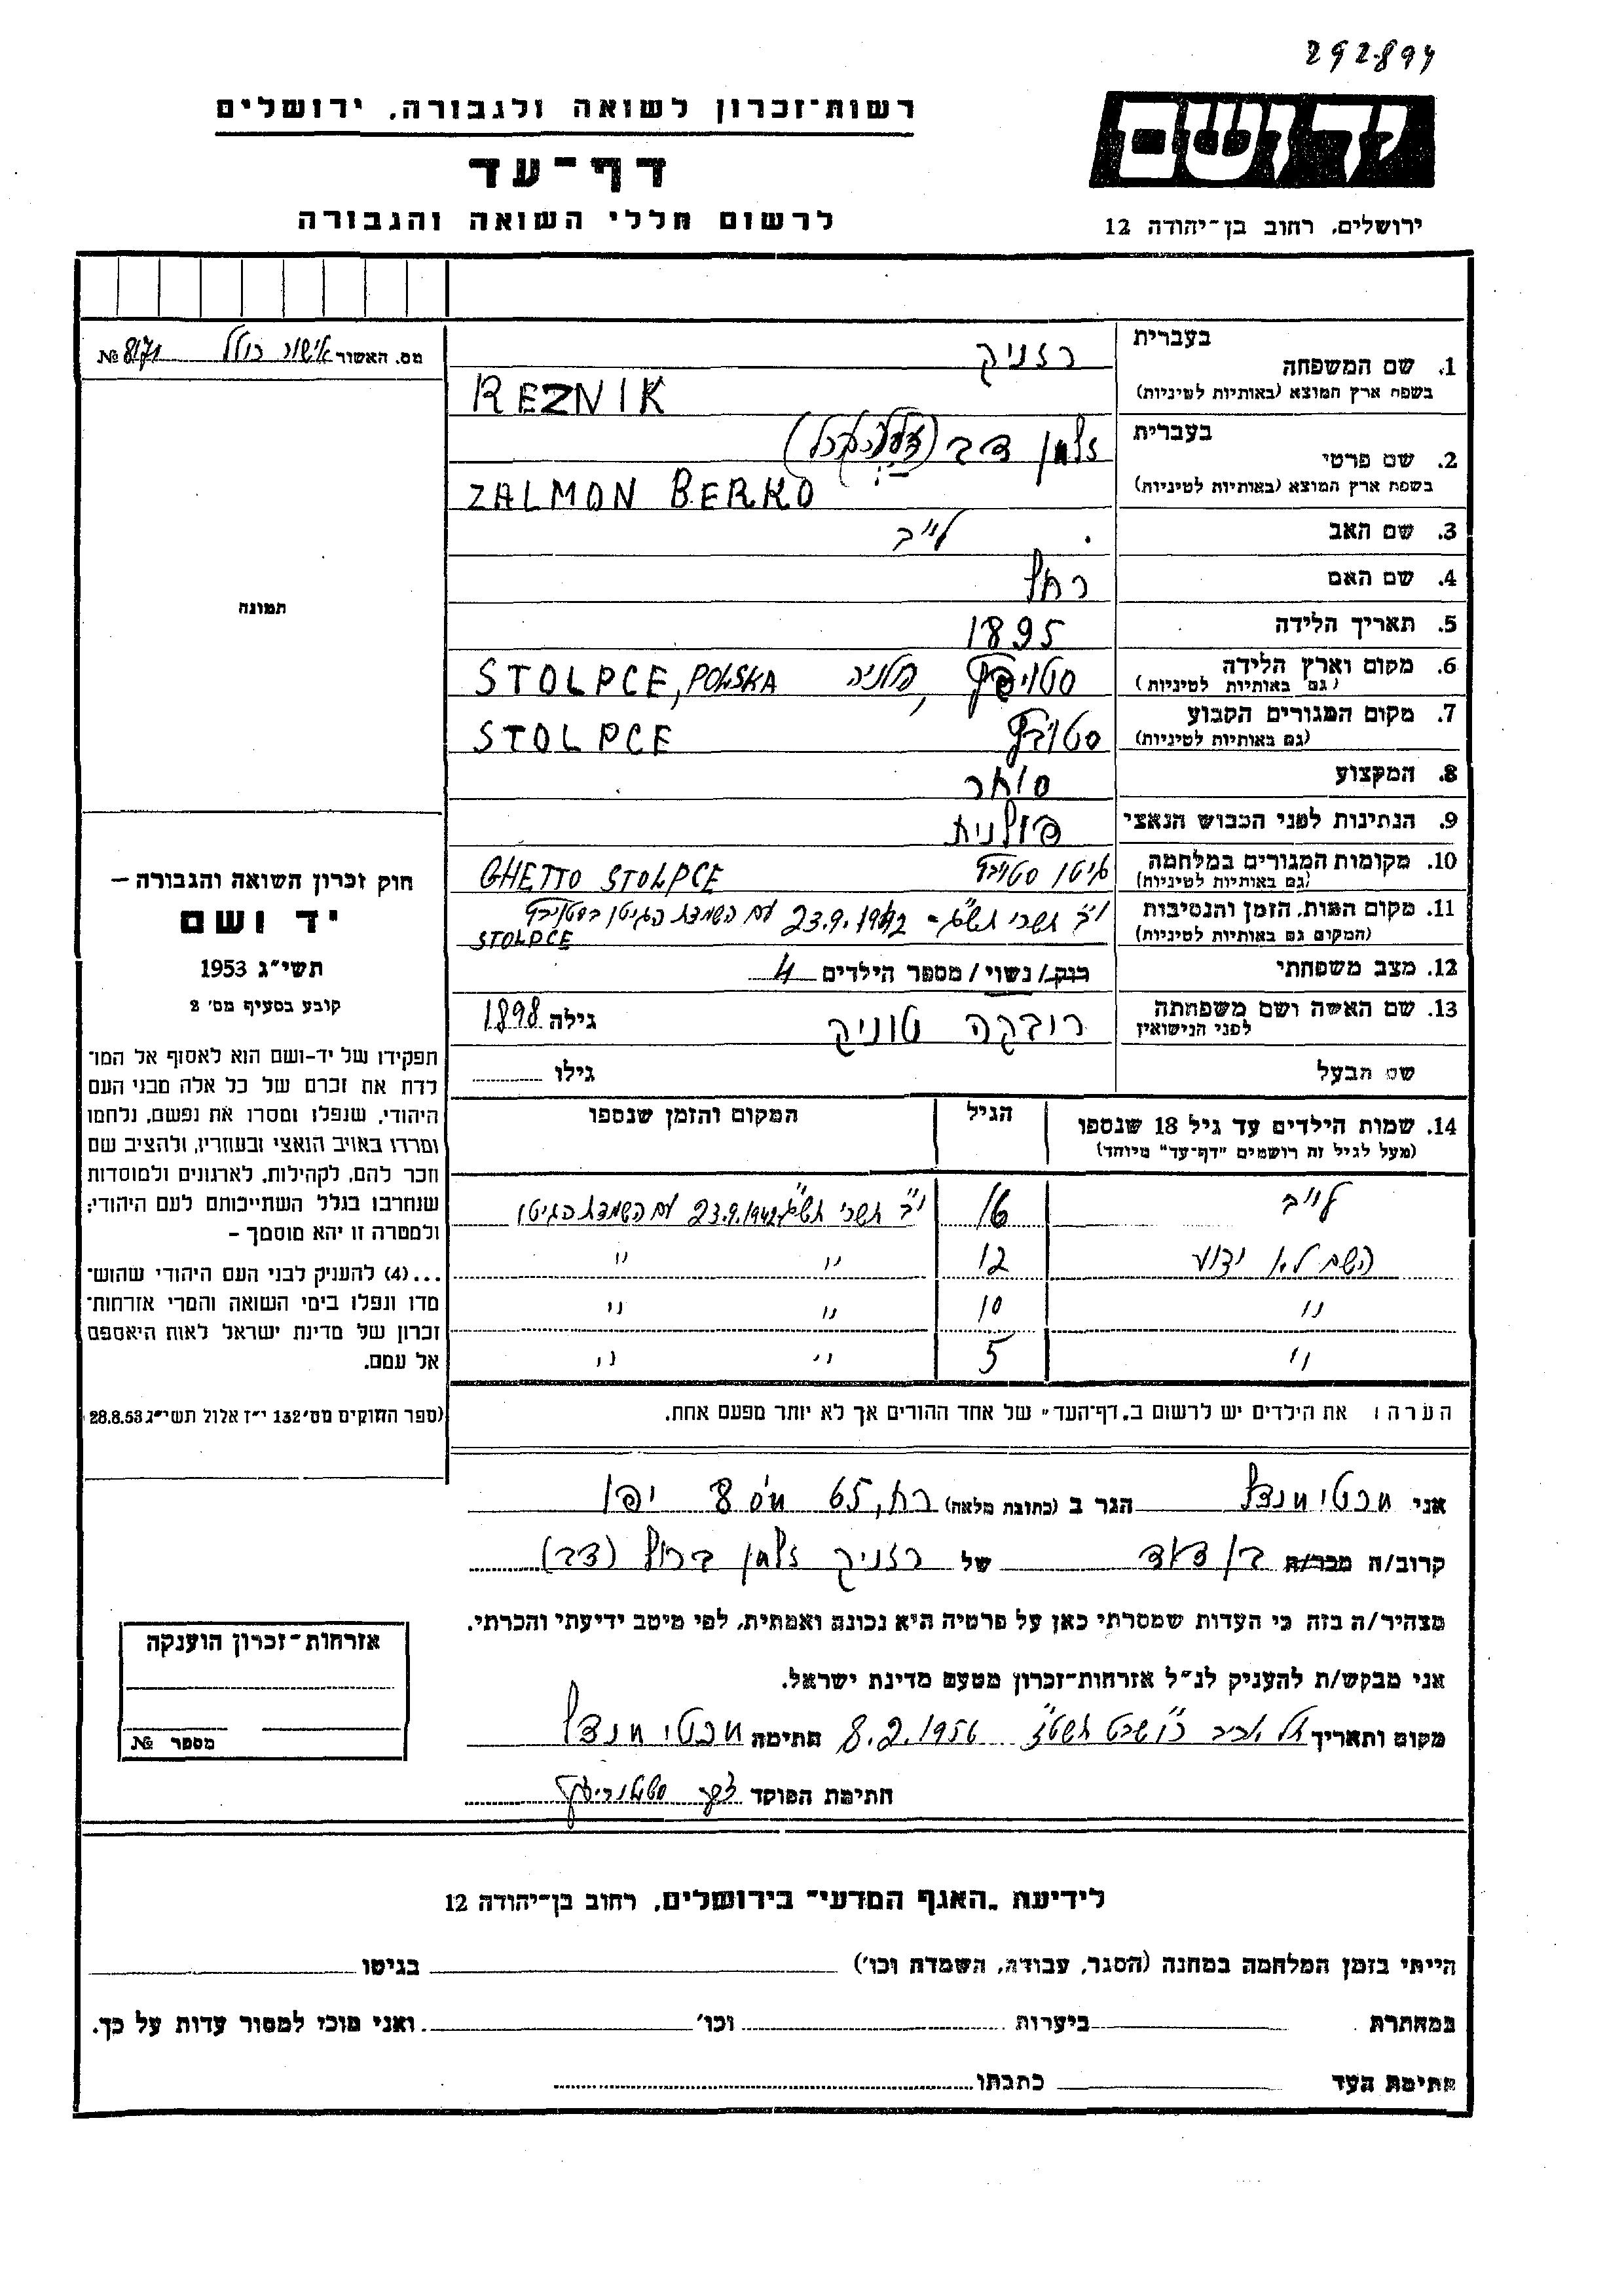 292894
יד ושם
ירושלים, רחוב בן־יהודה 12
רשות־זכרון לשואה ולגבורה, ירושלים
דף־עד
לרשום חללי השואה והגבורה
מס. האשור אישור כולל № 8171
תמונה
חוק זכרון השואה והגבורה —
יד ושם
תשי״ג 1953
קובע בסעיף מס׳ 2
תפקידו של יד-ושם הוא לאסוף אל המו־
לדת את זכרם של כל אלה מבני העם
היהודי, שנפלו ומסרו את נפשם, נלחמו
ומרדו באויב הנאצי ובעוזריו, ולהציב שם
וזכר להם, לקהילות, לארגונים ולמוסדות
שנחרבו בגלל השתייכותם לעם היהודי;
ולמטרה זו יהא מוסמך —
...(4) להעניק לבני העם היהודי שהוש־
מדו ונפלו בימי השואה והמרי אזרחות־
זכרון של מדינת ישראל לאות היאספם
אל עמם.
(ספר החוקים מס׳ 132 י״ז אלול תשי״ג 28.8.53
בעברית רזניק
1. שם המשפחה
בשפת ארץ המוצא (באותיות לטיניות) REZNIK
בעברית זלמן דב
2. שם פרטי
בשפת ארץ המוצא (באותיות לטיניות) ZALMON BERKO
3. שם האב לייב
4. שם האם רחל
5. תאריך הלידה 1895
6. מקום וארץ הלידה סטויבץ, פולניה STOLPCE, POLSKA
(גם באותיות לטיניות)
7. מקום המגורים הקבוע סטויבץ STOLPCE
(גם באותיות לטיניות)
8. המקצוע סוחר
9. הנתינות לפני הכבוש הנאצי פולנית
10. מקומות המגורים במלחמה גיטו סטויבץ GHETTO STOLPCE
(גם באותיות לטיניות)
11. מקום המות, הזמן והנסיבות י״ב תשרי תש״ג - 23.9.1942 עם השמדת הגיטו בסטויבץ
(המקום גם באותיות לטיניות) STOLPCE
12. מצב משפחתי רווק/נשוי/מספר הילדים 4
13. שם האשה ושם משפחתה רובקה טוניק גילה 1898
לפני הנישואין
שם הבעל גילו
14. שמות הילדים עד גיל 18 שנספו הגיל המקום והזמן שנספו
(מעל לגיל זה רושמים "דף־עד" מיוחד)
לייב 16 י״ב תשרי תש״ג 23.9.1942 עם השמדת הגיטו
השם לא ידוע 12 ״ ״
״ 10 ״ ״
״ 5 ״ ״
הערה: את הילדים יש לרשום ב„דף־העד״ של אחד ההורים אך לא יותר מפעם אחת.
אני מכטי מנדל הגר ב (כתובת מלאה) רח, 65 מס 8 יפו
קרוב/ה מכר/ה בן דוד של רזניק זלמן ברול (דב)
מצהיר/ה בזה כי העדות שמסרתי כאן על פרטיה היא נכונה ואמתית, לפי מיטב ידיעתי והכרתי.
אני מבקש/ת להעניק לנ״ל אזרחות־זכרון מטעם מדינת ישראל.
מקום ותאריך תל אביב כ״ו שבט תשט״ז 8.2.1956 חתימה מכטי מנדל
חתימת הפוקד
אזרחות־זכרון הוענקה
מספר №
לידיעת „האגף המדעי״ בירושלים, רחוב בן־יהודה 12
הייתי בזמן המלחמה במחנה (הסגר, עבודה, השמדת וכו׳) בגיטו
במחתרת ביערות וכו׳ ואני מוכן למסור עדות על כך.
חתימת העד כתבתו